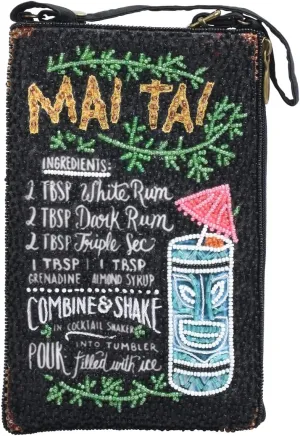 MAI TAI
INGREDIENTS:
2 TBSP White Rum
2 TBSP Dark Rum
2 TBSP Triple Sec
1 TBSP | 1 TBSP
GRENADINE ALMOND SYRUP
COMBINE & SHAKE
IN COCKTAIL SHAKER
INTO TUMBLER
POUR filled with ice